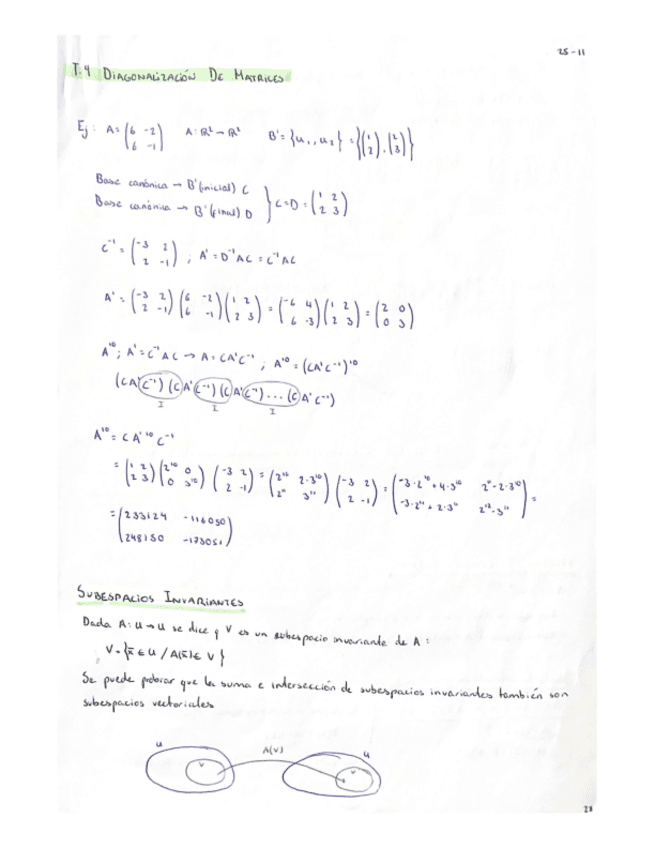 25-11
T.4 DIAGONALIZACIÓN DE MATRICES
Ej: A=(6 -2; 6 -1) A: ℝ² → ℝ² B'={u₁, u₂}={(1; 2), (2; 3)}
Base canónica → B'(inicial) C
Base canónica → B'(final) D } C=D=(1 2; 2 3)
C⁻¹=(-3 2; 2 -1) ; A'=D⁻¹AC=C⁻¹AC
A'=(-3 2; 2 -1)(6 -2; 6 -1)(1 2; 2 3)=(-6 4; 6 -3)(1 2; 2 3)=(2 0; 0 3)
A¹⁰; A'=C⁻¹AC → A=CA'C⁻¹ ; A¹⁰=(CA'C⁻¹)¹⁰
(CA'C⁻¹)(CA'C⁻¹)(CA'C⁻¹)...(CA'C⁻¹)
I I I
A¹⁰=CA'¹⁰C⁻¹
=(1 2; 2 3)(2¹⁰ 0; 0 3¹⁰)(-3 2; 2 -1)=(2¹⁰ 2·3¹⁰; 2¹¹ 3¹¹)(-3 2; 2 -1)=(-3·2¹⁰+4·3¹⁰ 2¹¹-2·3¹⁰; -3·2¹¹+2·3¹¹ 2¹²-3¹¹)=
=(233124 -116050; 248150 -173051)
SUBESPACIOS INVARIANTES
Dada A: U→U se dice q V es un subespacio invariante de A:
V={x̄ ∈ U / A(x̄) ∈ V}
Se puede probrar que la suma e intersección de subespacios invariantes también son
subespacios vectoriales
U A(V) U
V V
28